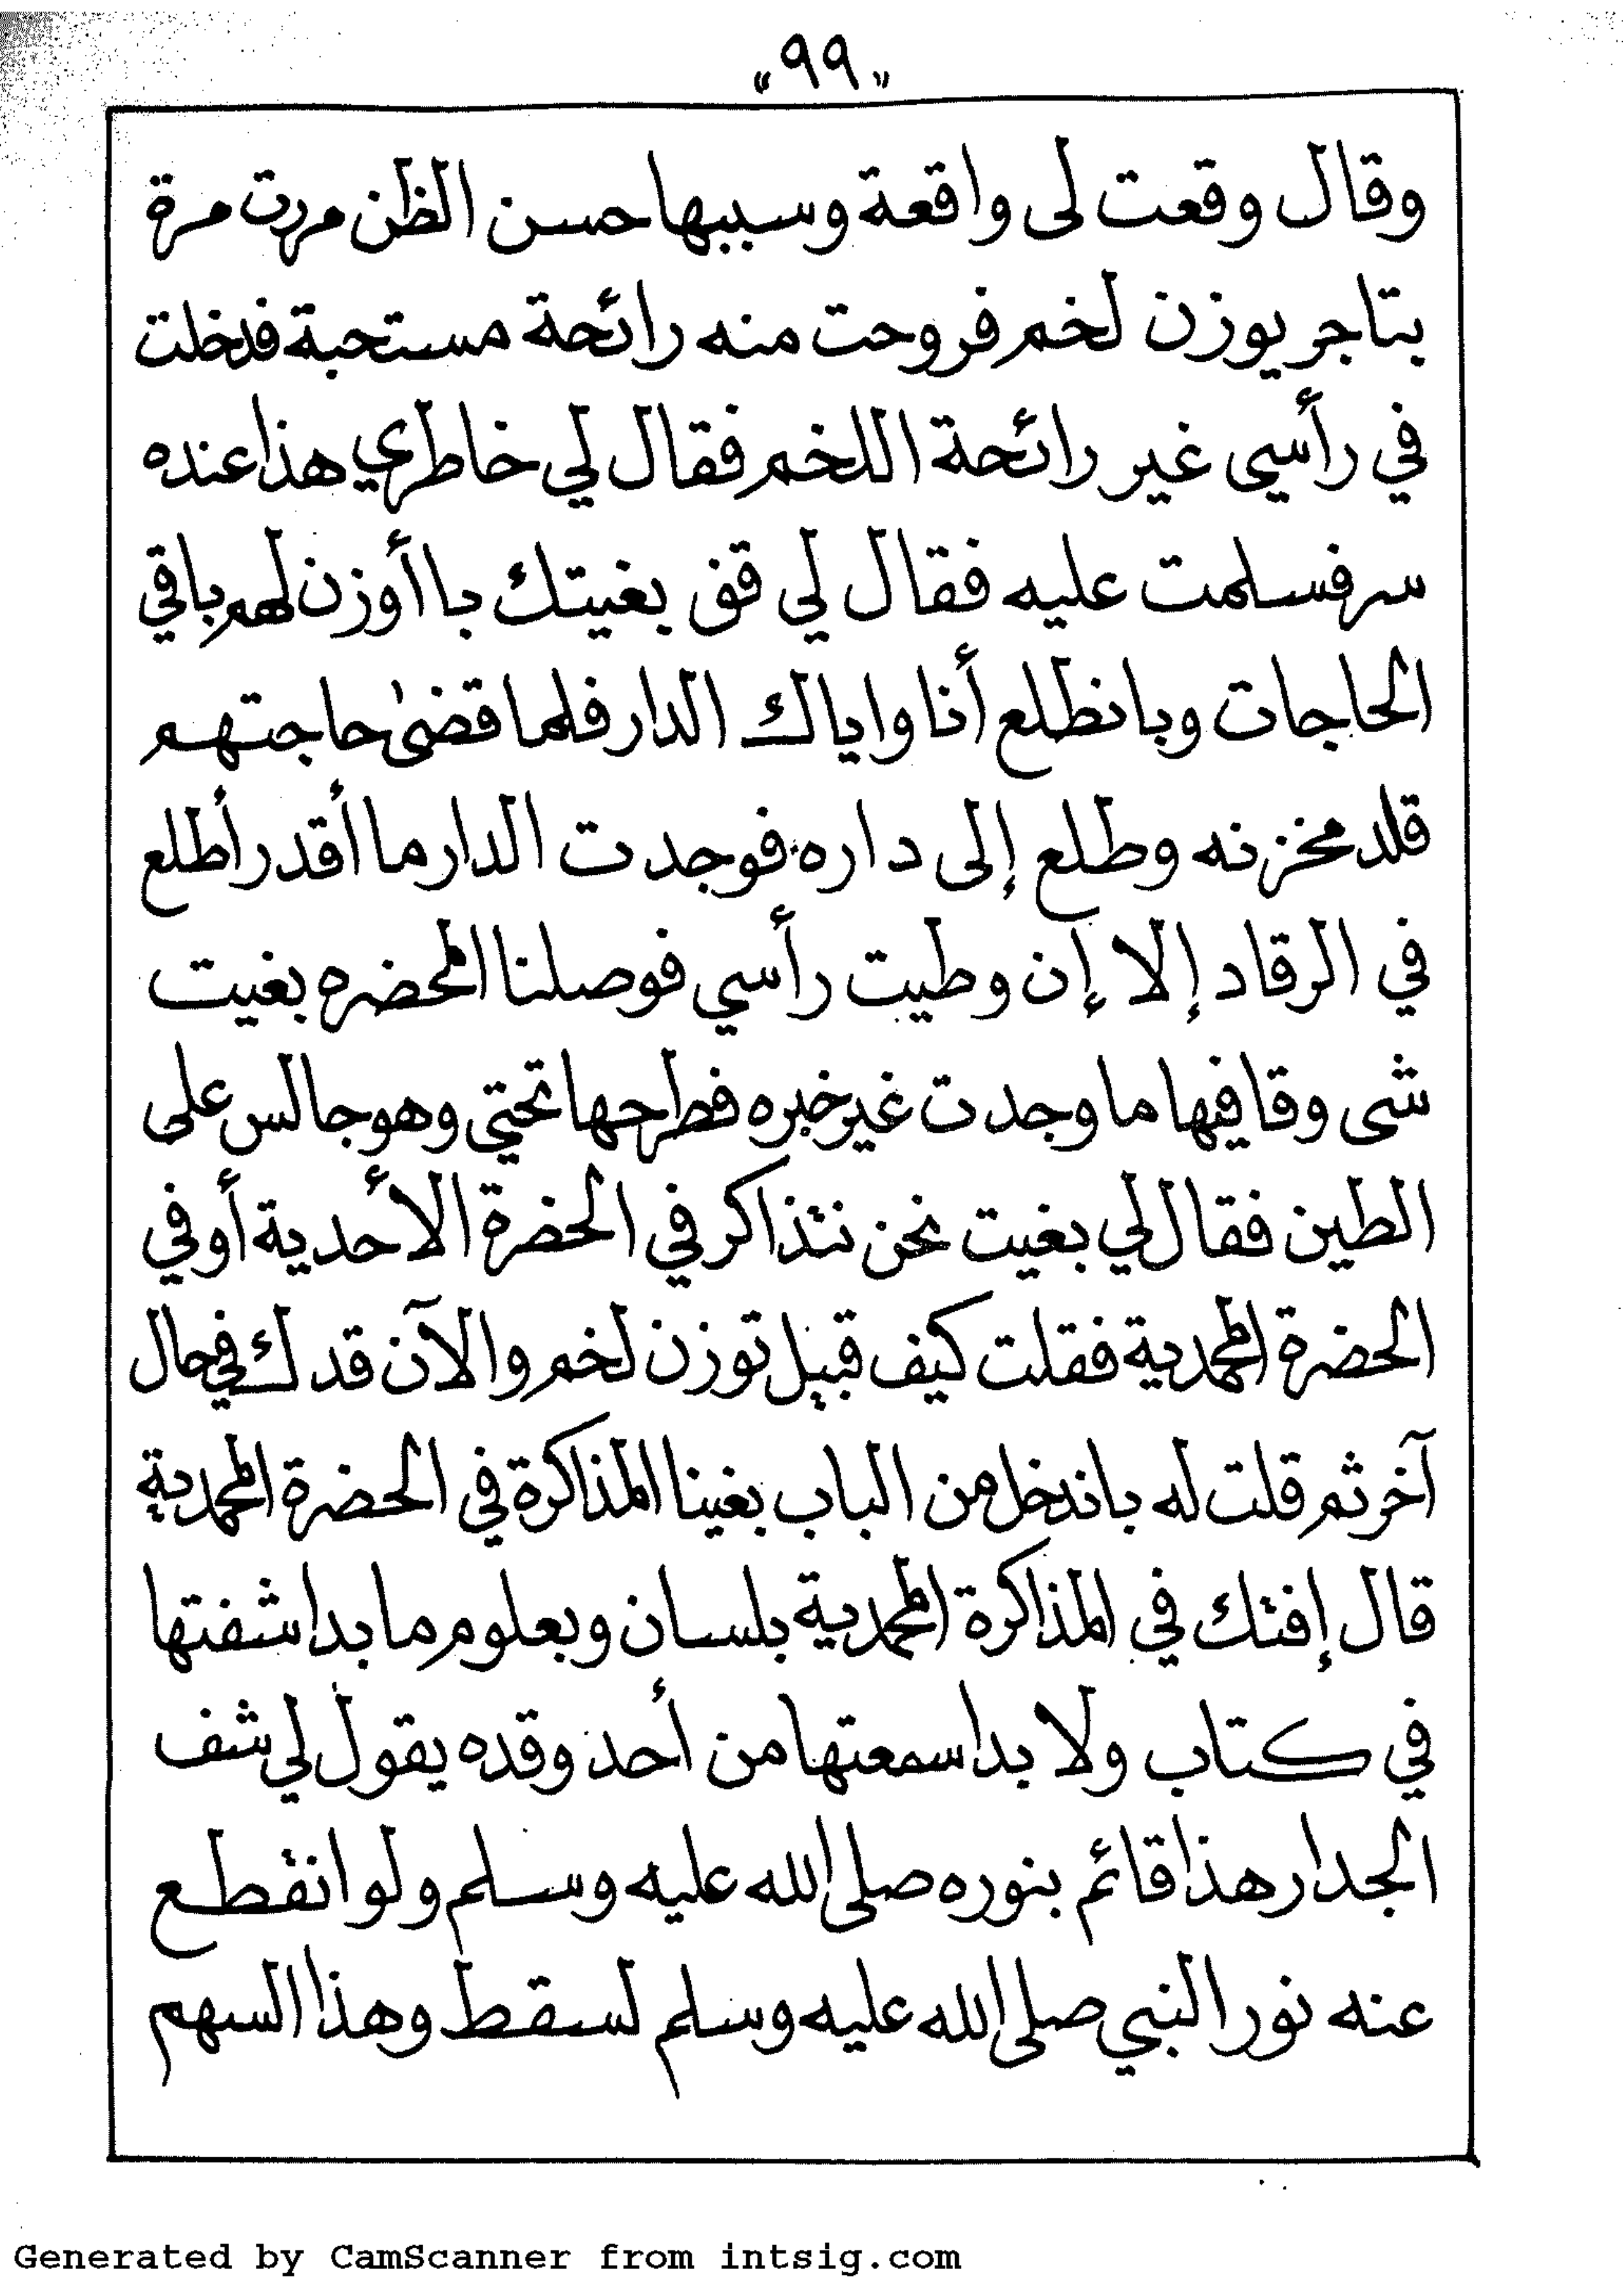 «٩٩»
وقال وقعت لى واقعة وسببها حسن الظن مررت مرة
بتاجر يوزن لخم فروحت منه رائحة مستحبة فدخلت
في رأسي غير رائحة اللخم فقال لي خاطري هذا عنده
سر فسلمت عليه فقال لي قف بغيتك با أوزن لهم باقي
الحاجات وبانطلع أنا واياك الدار فلما قضىٰ حاجتهم
قلد مخزنه وطلع إلى داره فوجدت الدار ما أقدر أطلع
في الرقاد إلا إن وطيت رأسي فوصلنا المحضره بغيت
شى وقافيها ما وجدت غير خبره فطرحها تحتي وهو جالس على
الطين فقال لي بغيت نحن نتذاكر في الحضرة الأحدية أو في
الحضرة المحمدية فقلت كيف قبيل توزن لخم والآن قدك في حال
آخر ثم قلت له باندخل من الباب بغينا المذاكرة في الحضرة المحمدية
قال إفتك في المذاكرة المحمدية بلسان وبعلوم ما بدا شفتها
في كتاب ولا بدا سمعتها من أحد وقده يقول لي شف
الجدار هذا قائم بنوره صلى الله عليه وسلم ولو انقطع
عنه نور النبي صلى الله عليه وسلم لسقط وهذا السهم
Generated by CamScanner from intsig.com